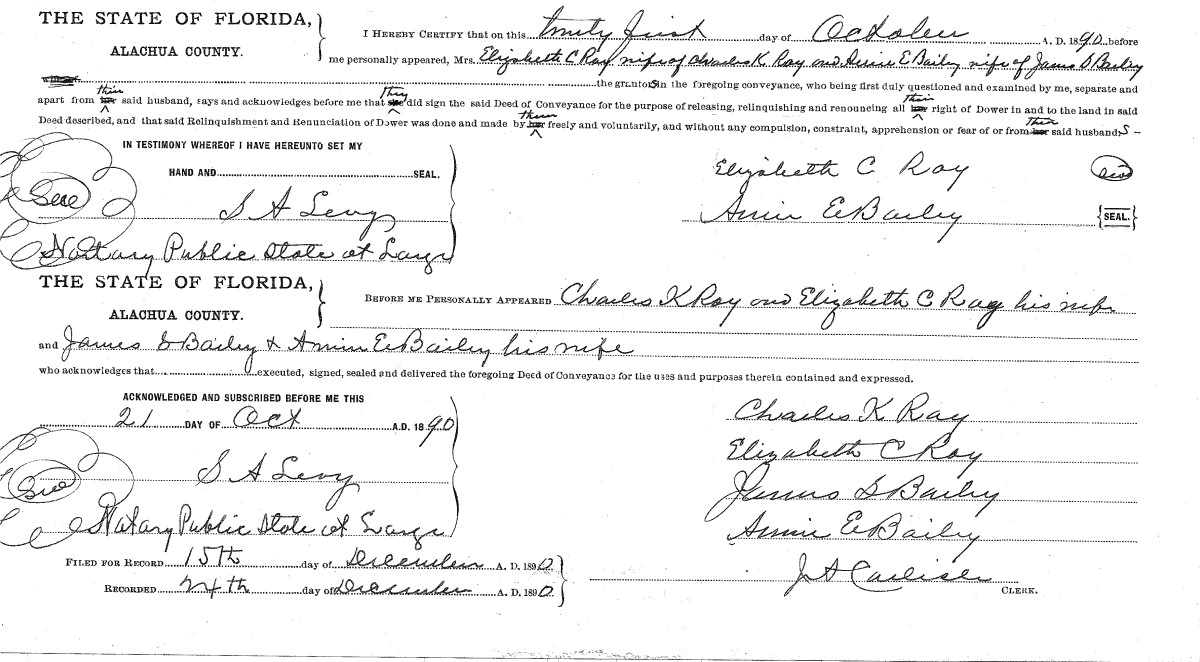 THE STATE OF FLORIDA,
ALACHUA COUNTY.
I HEREBY CERTIFY that on this twenty first day of October A. D. 1890, before
me personally appeared, Mrs. Elizabeth C Ray wife of Charles K. Ray and Annie E Bailey wife of James D Bailey
the grantors in the foregoing conveyance, who being first duly questioned and examined by me, separate and
apart from their said husband, says and acknowledges before me that they did sign the said Deed of Conveyance for the purpose of releasing, relinquishing and renouncing all their right of Dower in and to the land in said
Deed described, and that said Relinquishment and Renunciation of Dower was done and made by them freely and voluntarily, and without any compulsion, constraint, apprehension or fear of or from their said husbands –
IN TESTIMONY WHEREOF I HAVE HEREUNTO SET MY
HAND AND SEAL.
Seal
S A Levy
Notary Public State at Large
Elizabeth C Ray
Annie E Bailey {SEAL.}
THE STATE OF FLORIDA,
ALACHUA COUNTY.
BEFORE ME PERSONALLY APPEARED Charles K Ray and Elizabeth C Ray his wife
and James S Bailey & Annie E Bailey his wife
who acknowledges that executed, signed, sealed and delivered the foregoing Deed of Conveyance for the uses and purposes therein contained and expressed.
ACKNOWLEDGED AND SUBSCRIBED BEFORE ME THIS
21 DAY OF Oct A.D. 1890
Seal
S A Levy
Notary Public State at Large
Charles K Ray
Elizabeth C Ray
James S Bailey
Annie E Bailey
FILED FOR RECORD 15th day of December A. D. 1890.
RECORDED 24th day of December A. D. 1890.
J A Carlisle
CLERK.